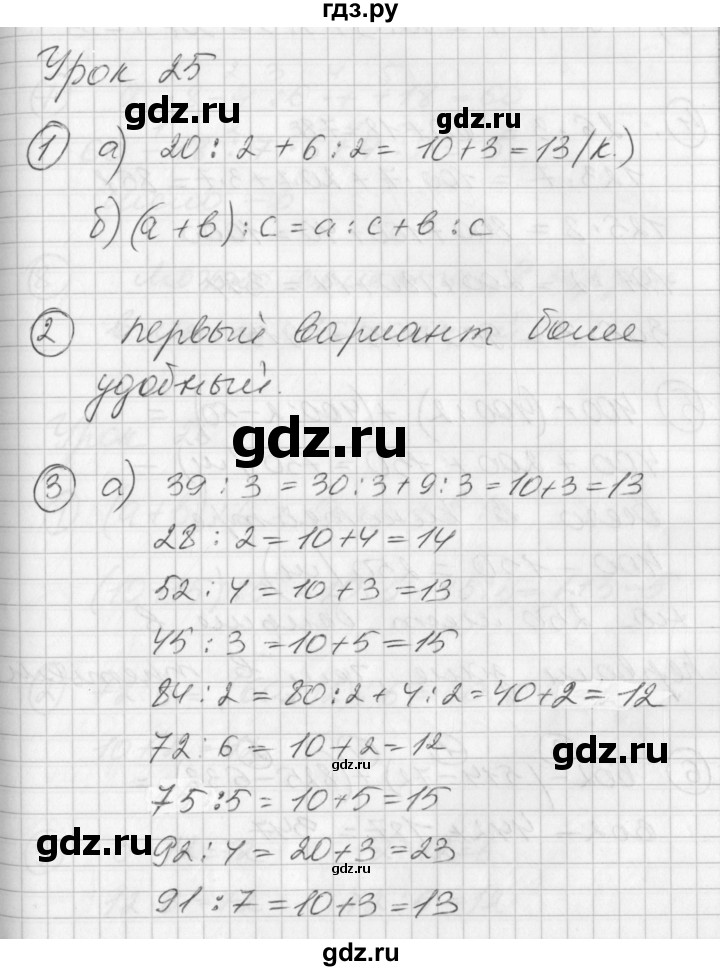 гдз.ру
Урок 25
gdz.ru
gdz.ru
1 а) 20 : 2 + 6 : 2 = 10 + 3 = 13 (к.)
б) (а + в) : с = а : с + в : с
2 первый вариант более
удобный.
gdz.ru
3 а) 39 : 3 = 30 : 3 + 9 : 3 = 10 + 3 = 13
28 : 2 = 10 + 4 = 14
52 : 4 = 10 + 3 = 13
45 : 3 = 10 + 5 = 15
84 : 2 = 80 : 2 + 4 : 2 = 40 + 2 = 12
72 : 6 = 10 + 2 = 12
gdz.ru
gdz.ru
75 : 5 = 10 + 5 = 15
gdz.ru
92 : 4 = 20 + 3 = 23
gdz.ru
91 : 7 = 10 + 3 = 13
gdz.ru